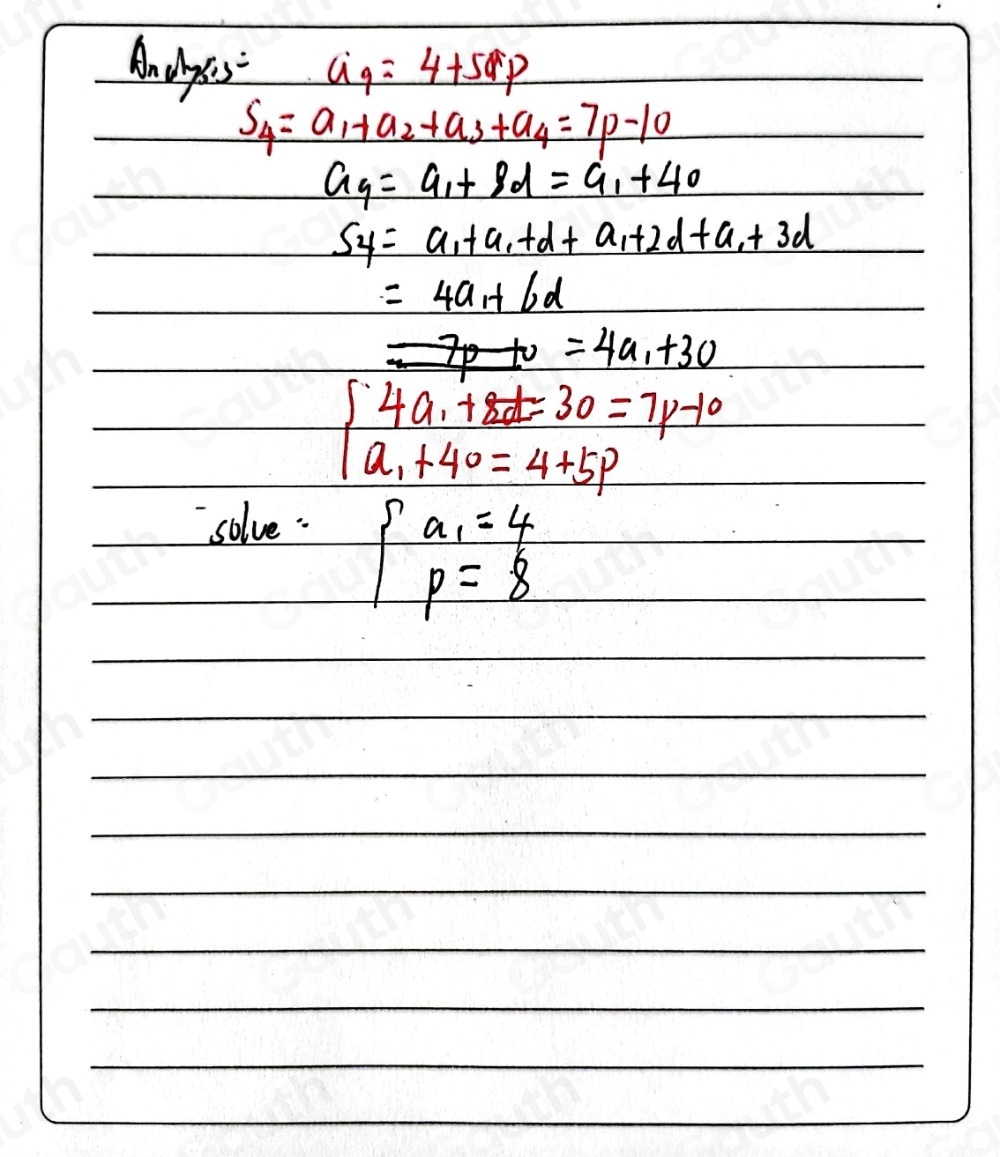 Analysis:
a₉ = 4+5p
S₄ = a₁+a₂+a₃+a₄ = 7p-10
a₉ = a₁+8d = a₁+40
S4 = a₁+a₁+d+a₁+2d+a₁+3d
= 4a₁+6d
= 7p-10 = 4a₁+30
4a₁+8d= 30 = 7p-10
a₁+40 = 4+5p
solve:
a₁ = 4
p = 8
Gauth